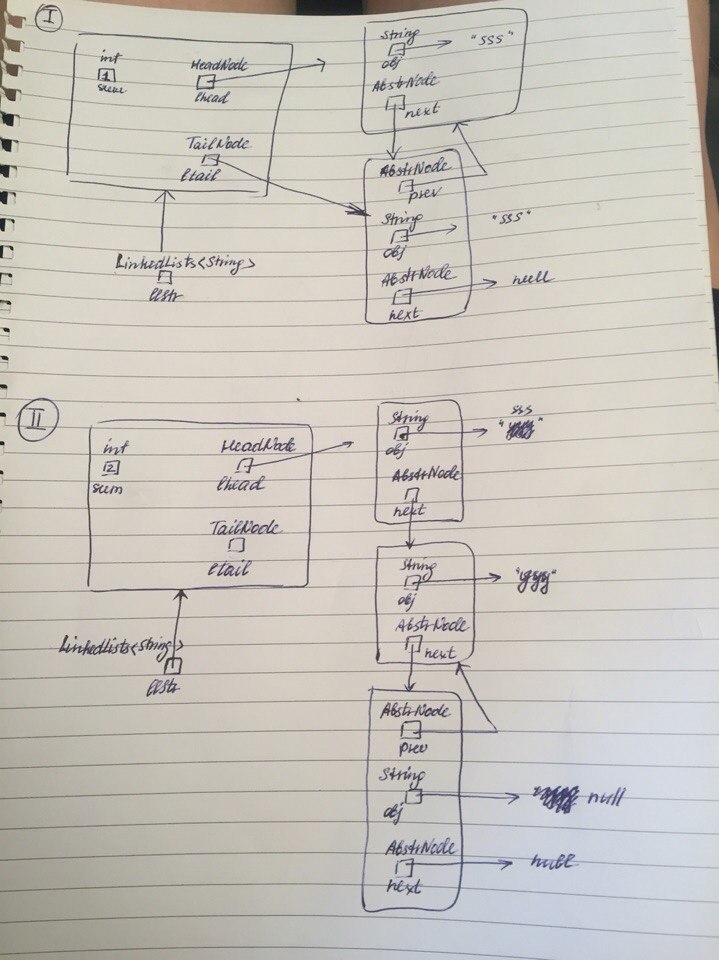 I
int
1
sum
HeadNode
lhead
TailNode
ltail
LinkedLists<String>
llstr
String
obj
"sss"
AbstrNode
next
AbstrNode
prev
String
obj
"sss"
AbstrNode
next
null
II
int
2
sum
HeadNode
lhead
TailNode
ltail
LinkedLists<String>
llstr
String
obj
"sss"
AbstrNode
next
String
obj
"yyy"
AbstrNode
next
AbstrNode
prev
String
obj
null
AbstrNode
next
null